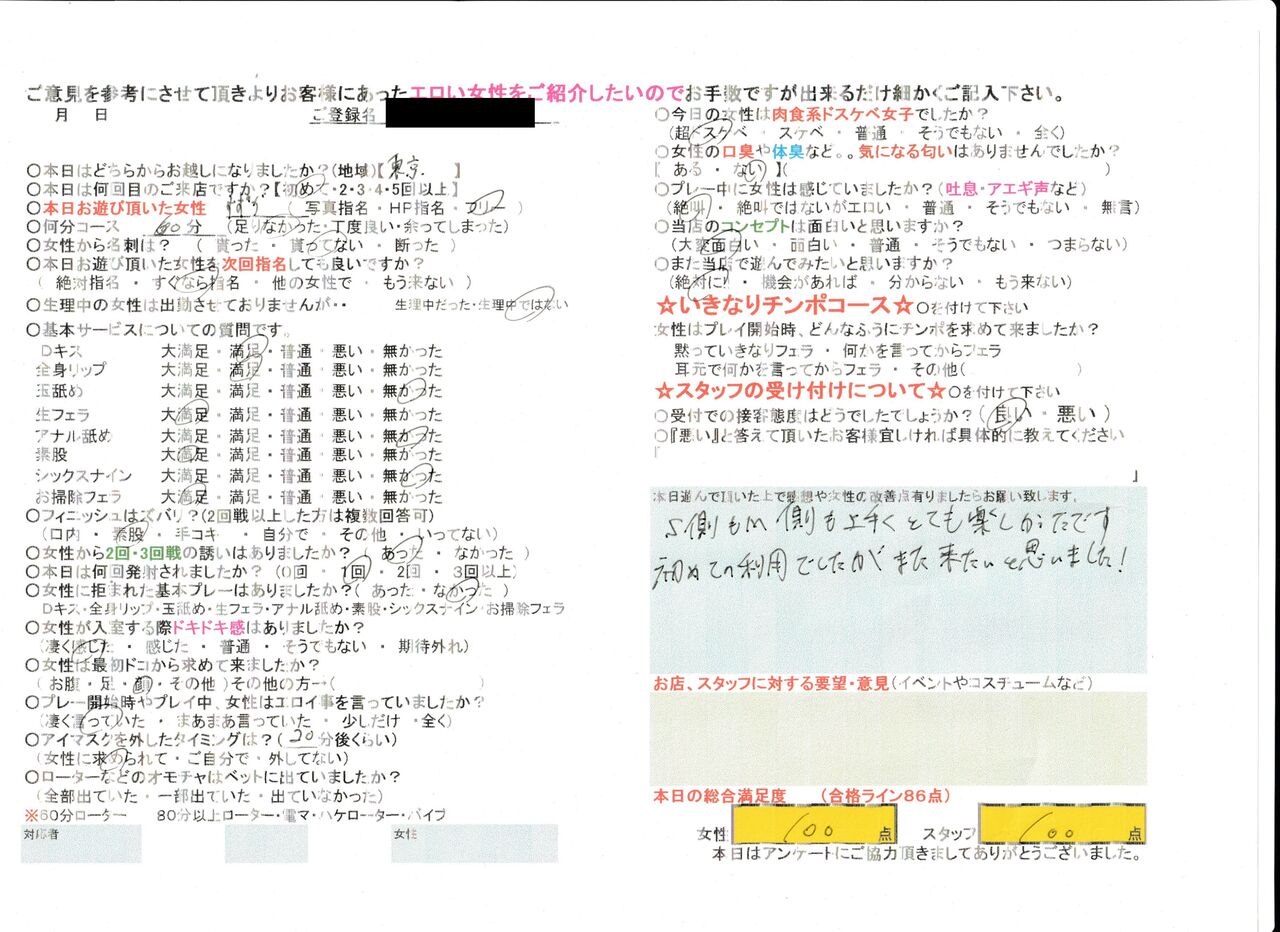 ご意見を参考にさせて頂きよりお客様にあったエロい女性をご紹介したいのでお手数ですが出来るだけ細かくご記入下さい。
月 日 ご登録名
○本日はどちらからお越しになりましたか?(地域)【東京 】
○本日は何回目のご来店ですか?【初めて・2・3・4・5回以上】
○本日お遊び頂いた女性 ( 写真指名・HP指名・フリー )
○何分コース 60分 (足りなかった・丁度良い・余ってしまった)
○女性から名刺は? ( 貰った・貰ってない・断った )
○本日お遊び頂いた女性を次回指名しても良いですか?
( 絶対指名・すぐなら指名・他の女性で・もう来ない )
○生理中の女性は出勤させておりませんが・・ 生理中だった・生理中ではない
○基本サービスについての質問です。
Dキス 大満足・満足・普通・悪い・無かった
全身リップ 大満足・満足・普通・悪い・無かった
玉舐め 大満足・満足・普通・悪い・無かった
生フェラ 大満足・満足・普通・悪い・無かった
アナル舐め 大満足・満足・普通・悪い・無かった
素股 大満足・満足・普通・悪い・無かった
シックスナイン 大満足・満足・普通・悪い・無かった
お掃除フェラ 大満足・満足・普通・悪い・無かった
○フィニッシュはズバリ?(2回戦以上した方は複数回答可)
(口内・素股・手コキ・自分で・その他・いってない)
○女性から2回・3回戦の誘いはありましたか? ( あった・なかった )
○本日は何回発射されましたか? (0回・1回・2回・3回以上)
○女性に拒まれた基本プレーはありましたか?( あった・なかった )
Dキス・全身リップ・玉舐め・生フェラ・アナル舐め・素股・シックスナイン・お掃除フェラ
○女性が入室する際ドキドキ感はありましたか?
(凄く感じた・感じた・普通・そうでもない・期待外れ)
○女性は最初ドコから求めて来ましたか?
( お腹・足・顔・その他 )その他の方→( )
○プレー開始時やプレイ中、女性はエロイ事を言っていましたか?
(凄く言っていた・まあまあ言っていた・少しだけ・全く)
○アイマスクを外したタイミングは?( 20分後くらい)
(女性に求められて・ご自分で・外してない)
○ローターなどのオモチャはベットに出ていましたか?
(全部出ていた・一部出ていた・出ていなかった)
※60分ローター 80分以上ローター・電マ・ハケローター・バイブ
対応者 女性
○今日の女性は肉食系ドスケベ女子でしたか?
(超ドスケベ・スケベ・普通・そうでもない・全く)
○女性の口臭や体臭など。。気になる匂いはありませんでしたか?
[ ある・ない ]( )
○プレー中に女性は感じていましたか?(吐息・アエギ声など)
(絶叫・絶叫ではないがエロい・普通・そうでもない・無言)
○当店のコンセプトは面白いと思いますか?
(大変面白い・面白い・普通・そうでもない・つまらない)
○また当店で遊んでみたいと思いますか?
(絶対に!・機会があれば・分からない・もう来ない)
☆いきなりチンポコース☆○を付けて下さい
女性はプレイ開始時、どんなふうにチンポを求めて来ましたか?
黙っていきなりフェラ・何かを言ってからフェラ
耳元で何かを言ってからフェラ・その他( )
☆スタッフの受け付けについて☆○を付けて下さい
○受付での接客態度はどうでしたでしょうか?( 良い・悪い )
○『悪い』と答えて頂いたお客様宜しければ具体的に教えてください
「 」
本日遊んで頂いた上で感想や女性の改善点有りましたらお願い致します。
S側もM側も上手くとても楽しかったです
初めての利用でしたがまた来たいと思いました!
お店、スタッフに対する要望・意見(イベントやコスチュームなど)
本日の総合満足度 (合格ライン86点)
女性 100 点 スタッフ 100 点
本日はアンケートにご協力頂きましてありがとうございました。